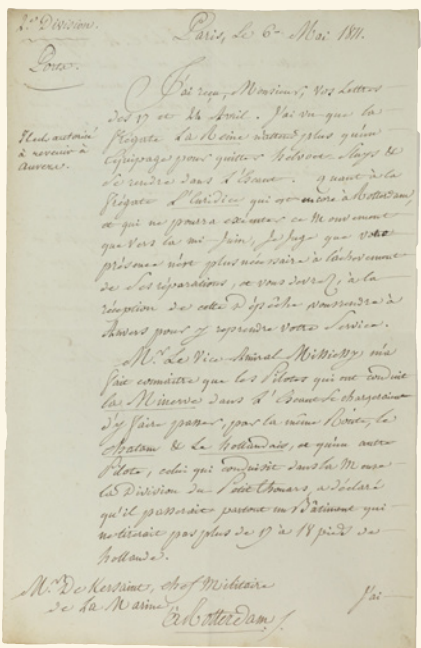 2e Division.
Paris, Le 6 Mai 1811.
Ports.
J'ai reçu, Monsieur, vos Lettres
des 17 et 24 Avril. J'ai vu que la
Il est autorisé
à revenir à
Anvers.
frégate La Reine n'attend plus qu'un
Equipage pour quitter helvoet Sluys &
se rendre dans L'Escaut. quant à la
frégate L'Euridice qui est encore à Rotterdam,
et qui ne pourra exécuter ce Mouvement
que vers la mi Juin, Je Juge que votre
présence n'est plus nécessaire à l'achevement
de Ses réparations, et vous devez, à la
réception de cette dépêche, vous rendre à
Anvers pour y reprendre votre Service.
Mr. Le Vice Amiral Missiessy m'a
fait connaitre que les Pilotes qui ont conduit
la Minerve dans L'Escaut se chargeraient
d'y faire passer, par la même Route, le
Chatam & Le hollandais, et qu'un autre
Pilote, celui qui conduisit dans la Meuse
la Division du Petit thouars, a déclaré
qu'il passerait partout un Bâtiment qui
ne tirerait pas plus de 17 à 18 pieds de
hollande.
Mr. De Kersaint, chef Militaire
de La Marine,
à Rotterdam.
J'ai